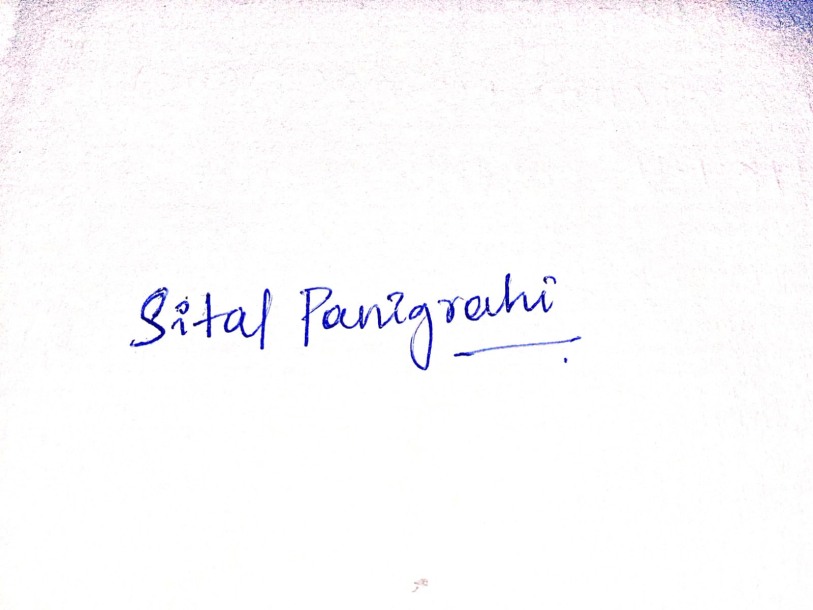 Sital Panigrahi